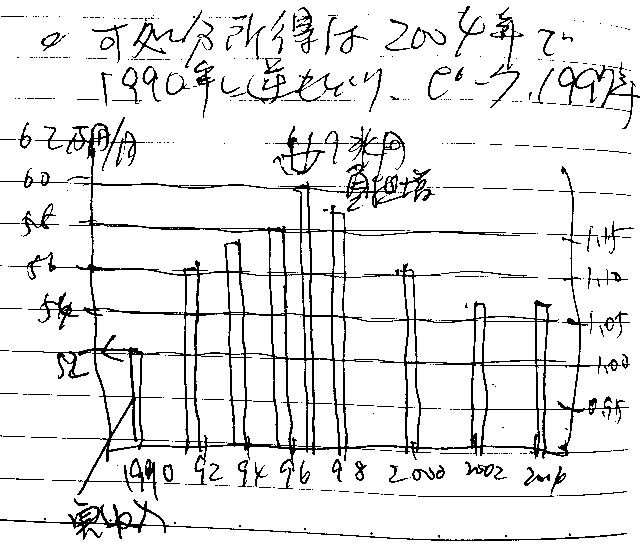 可処分所得は2004年で
1990年に逆もどり、ピーク、1997年
62万円/月
9兆円
負担増
60
58
56
54
52
1.15
1.10
1.05
1.00
0.95
1990 92 94 96 98 2000 2002
実収入